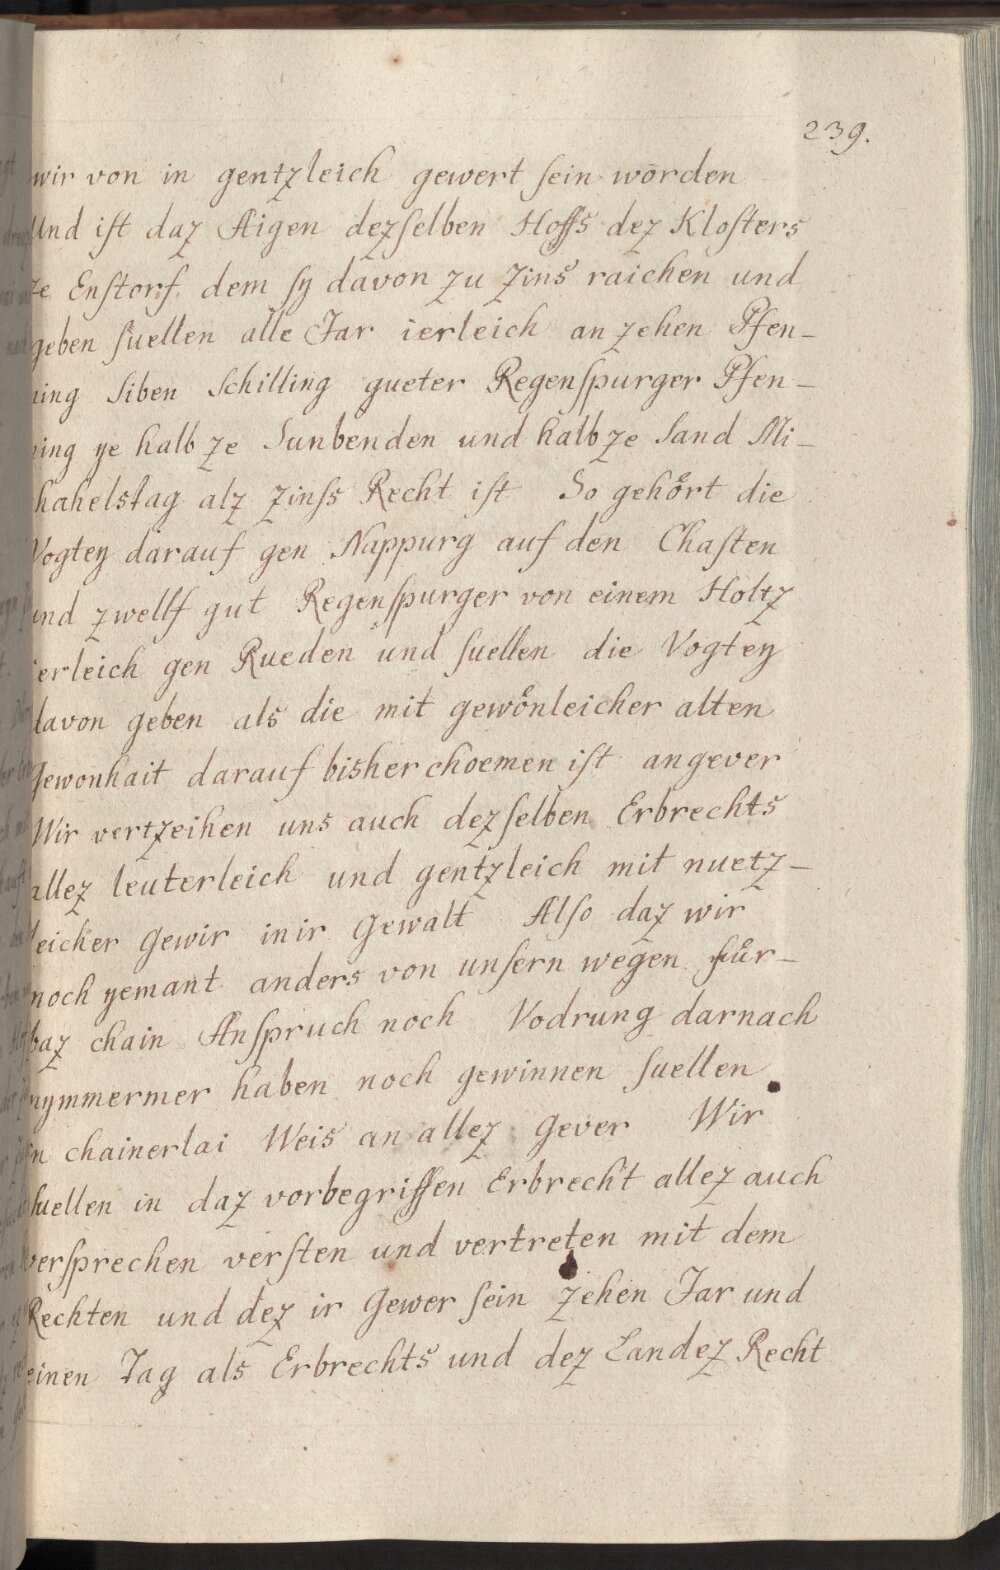 239.
wir von in gentzleich gewert sein worden
Und ist daz Aigen dezselben Hoffs dez Klosters
ze Enstorf dem sy davon zu Zins raichen und
geben suellen alle Jar ierleich an zehen Pfen-
ning siben Schilling gueter Regenspurger Pfen-
ning ye halb ze Sunbenden und halb ze Sand Mi-
hahelstag alz Zinss Recht ist So gehört die
Vogtey darauf gen Nappurg auf den Chasten
und zwelff gut Regenspurger von einem Holtz
ierleich gen Rueden und suellen die Vogtey
davon geben als die mit gewönleicher alten
Gewonhait darauf bisher choemen ist angever
Wir vertzeihen uns auch dezselben Erbrechts
allez leuterleich und gentzleich mit nuetz-
leicher Gewir in ir Gewalt Also daz wir
noch yemant anders von unsern wegen für-
baz chain Anspruch noch Vodrung darnach
nymmermer haben noch gewinnen suellen
in chainerlai Weis an allez Gever Wir
suellen in daz vorbegriffen Erbrecht allez auch
versprechen versten und vertreten mit dem
Rechten und dez ir Gewer sein zehen Jar und
einen Tag als Erbrechts und dez Landez Recht